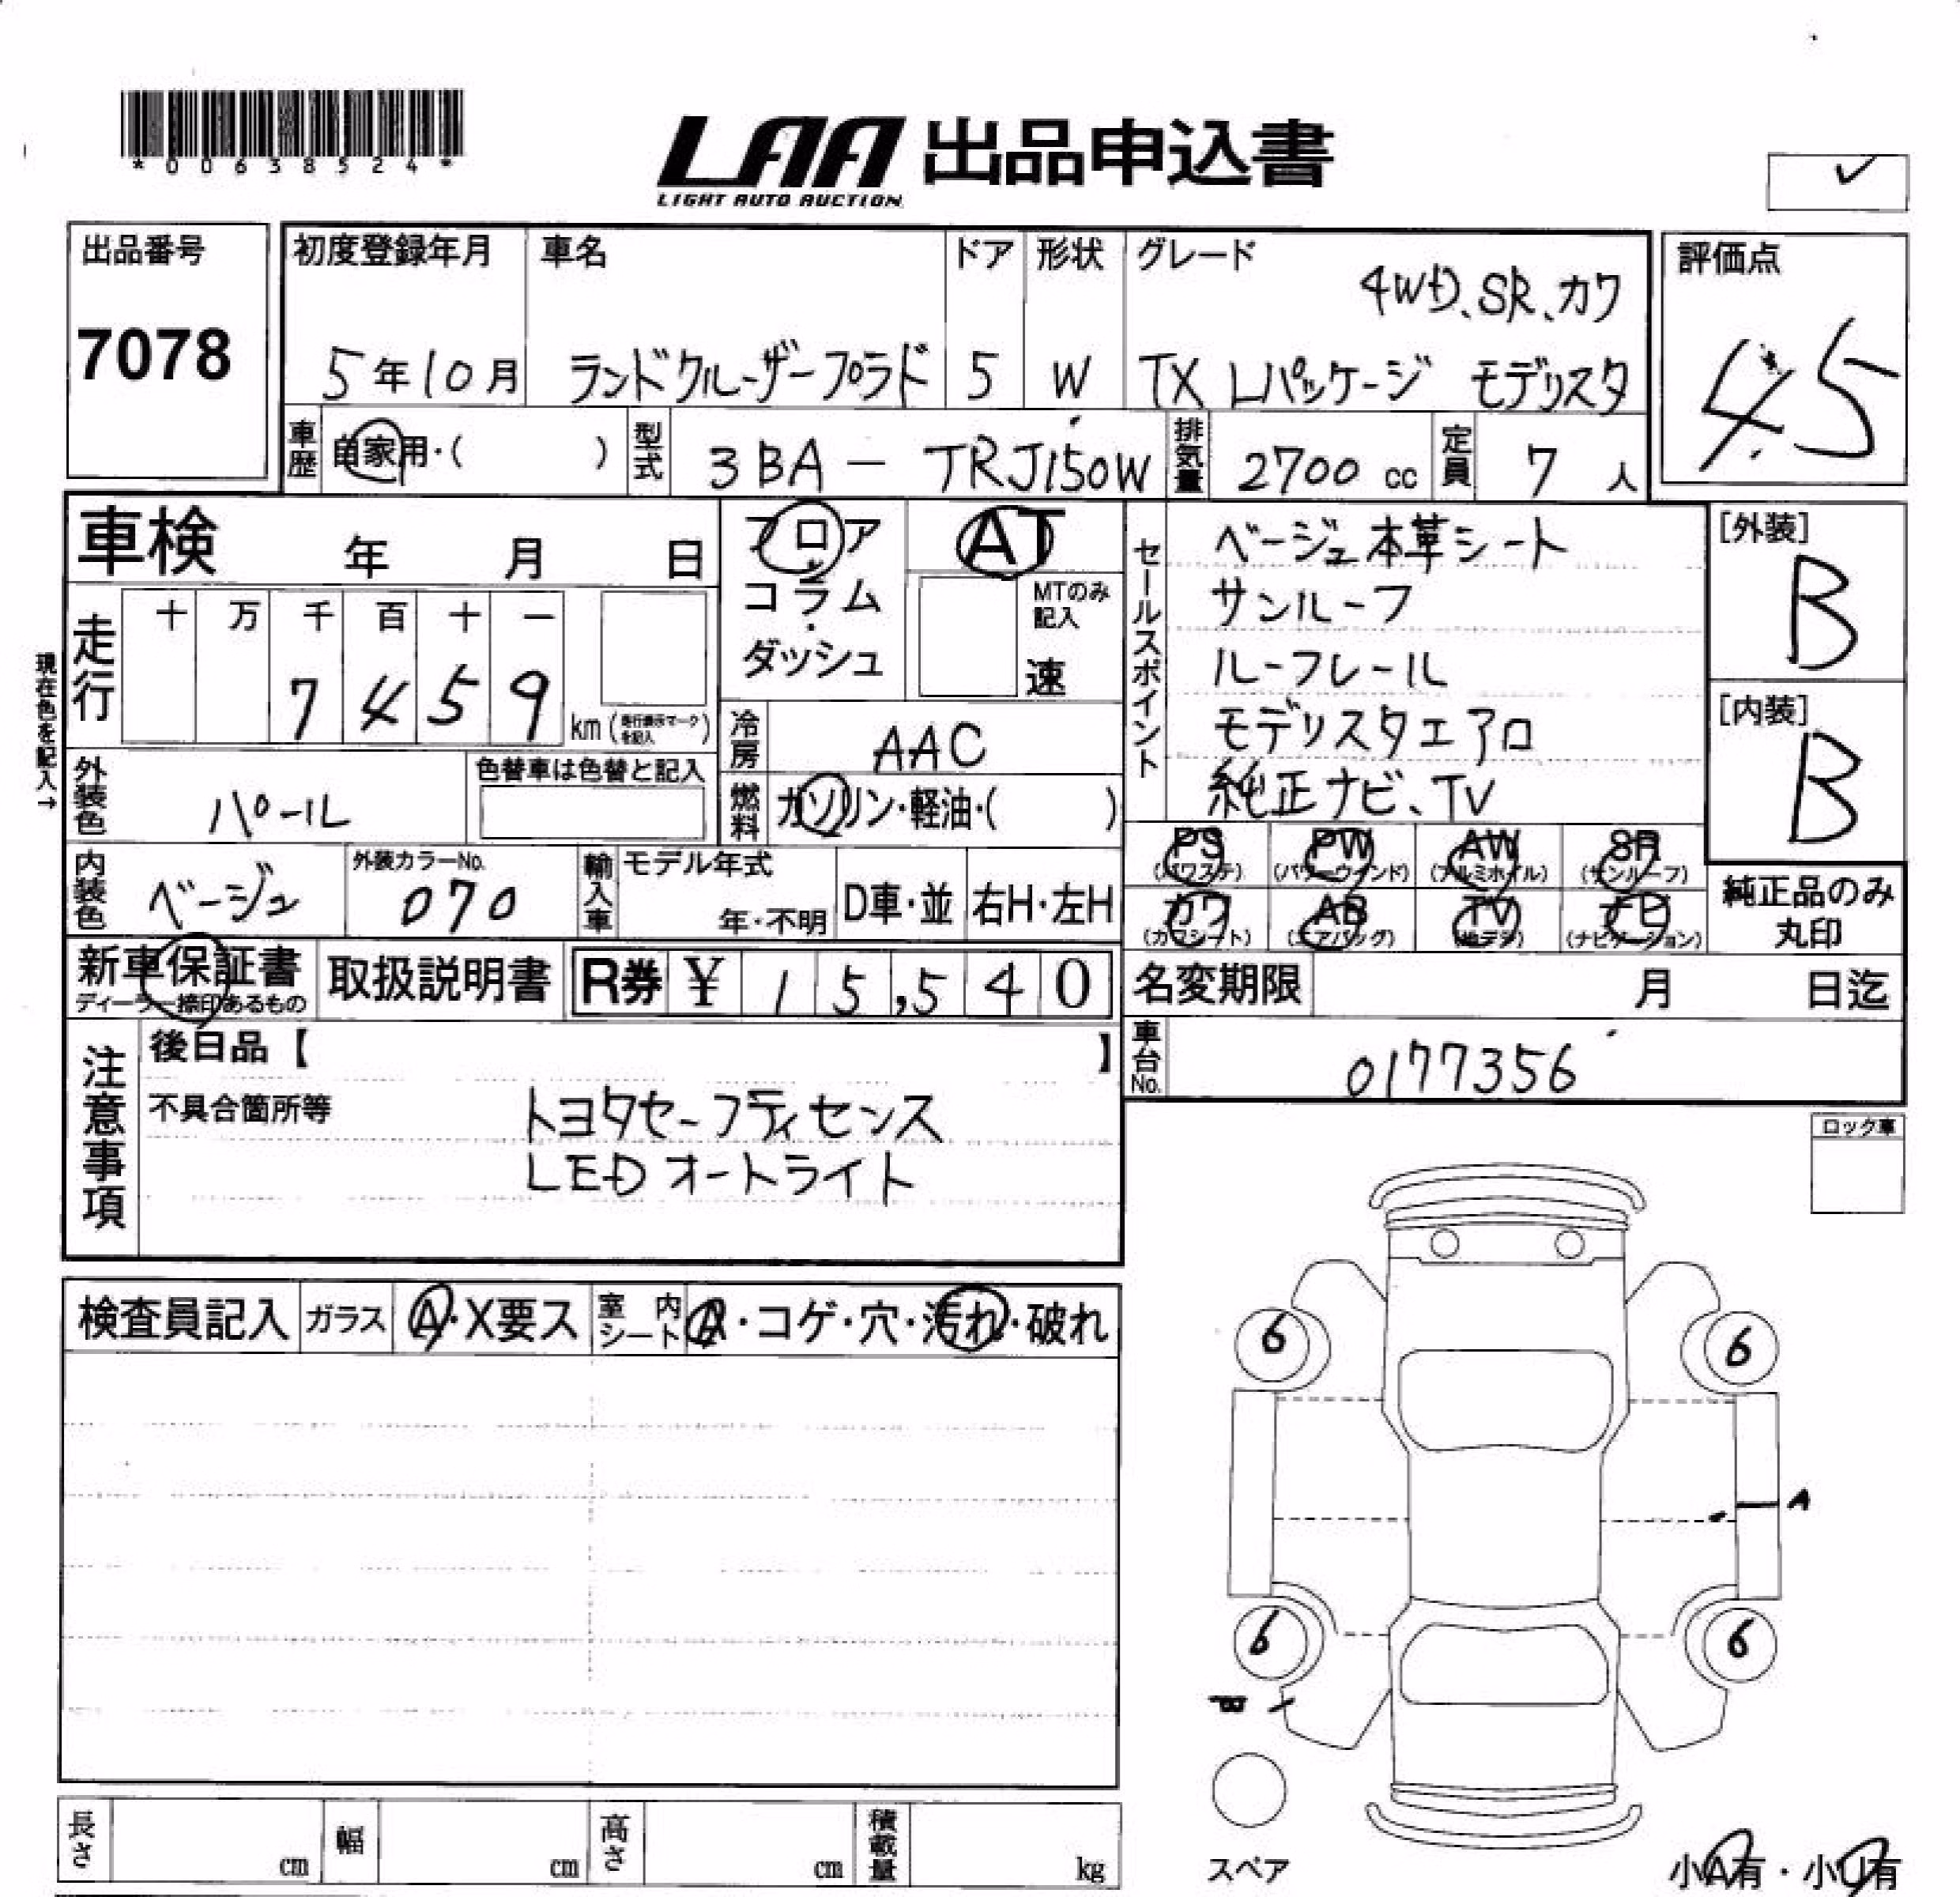 *00638524*
LAA 出品申込書
LIGHT AUTO AUCTION
出品番号
7078
初度登録年月
5年10月
車名
ランドクルーザープラド
ドア
5
形状
W
グレード
4WD、SR、カワ
TX Lパッケージ モデリスタ
評価点
4.5
車歴 自家用・( )
型式 3BA - TRJ150W
排気量 2700 cc
定員 7 人
車検 年 月 日
フロア
コラム
ダッシュ
AT
MTのみ
記入
速
セールスポイント
ベージュ本革シート
サンルーフ
ルーフレール
モデリスタエアロ
純正ナビ、TV
[外装]
B
[内装]
B
現在色を記入→
走行
十 万 千 百 十 一
7 4 5 9
km (走行表示マークを記入)
冷房 AAC
外装色 パール
色替車は色替と記入
燃料 ガソリン・軽油・( )
PS (パワステ)
PW (パワーウインド)
AW (アルミホイル)
SR (サンルーフ)
カワ (カワシート)
AB (エアバッグ)
TV (地デジ)
ナビ (ナビゲーション)
純正品のみ
丸印
内装色 ベージュ
外装カラーNo.
070
輸入車
モデル年式
年・不明
D車・並
右H・左H
新車保証書
ディーラー捺印あるもの
取扱説明書
R券 ¥ 15,540
名変期限 月 日迄
車台No. 0177356
注意事項
後日品【 】
不具合箇所等
トヨタセーフティセンス
LEDオートライト
ロック車
検査員記入
ガラス A・X要ス
室内シート A・コゲ・穴・汚れ・破れ
6
6
A
6
6
スペア
長さ cm
幅 cm
高さ cm
積載量 kg
小A有・小U有